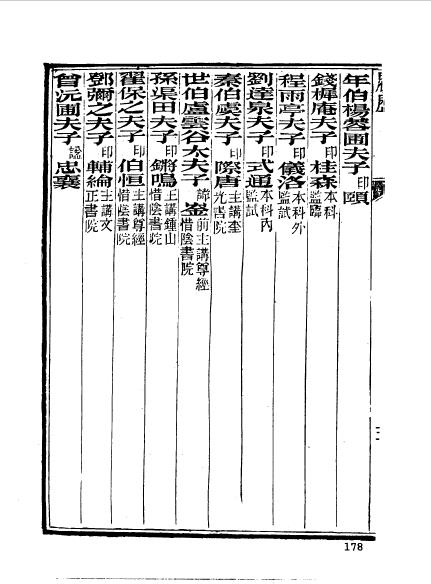 年伯楊蓉圃夫子印頤
錢樨庵夫子印桂森本科監臨
程雨亭夫子印儀洛本科外監試
劉達泉夫子印式通本科內監試
秦伯虞夫子印際唐主講奎光書院
世伯盧雲谷太夫子諱崟前主講尊經惜陰書院
孫渠田夫子印鏘鳴主講鍾山惜陰書院
翟保之夫子印伯恒主講尊經惜陰書院
鄧彌之夫子印輔綸主講文正書院
曾沅圃夫子諡忠襄
178